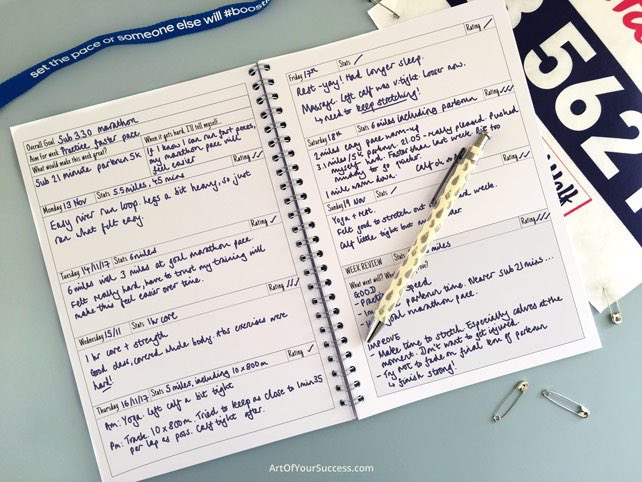 set the pace or someone else will #boost
Overall Goal Sub 3.30 marathon
Aim for week Practice faster pace
What would make this week great?
Sub 21 minute parkrun 5K
When it gets hard, I'll tell myself...
If I know I can run fast paces,
my marathon pace will
feel easier
Monday 13 Nov Stats 5.5 miles, 45 mins Rating ✓✓
Easy river run loop. Legs a bit heavy, so just
ran what felt easy.
Tuesday 14/11/17 Stats 6 miles Rating ✓
6 miles with 3 miles at goal marathon pace.
Felt really hard, have to trust my training will
make this feel easier over time.
Wednesday 15/11 Stats 1 hr core Rating ✓✓✓
1 hr core + strength
Good class, covered whole body. Abs exercises were
hard!
Thursday 16/11/17 Stats 5 miles, including 10 x 800m Rating ✓
Am: Yoga. Left calf a bit tight
Pm: Track. 10 x 800m. Tried to keep as close to 1min35
per lap as poss. Calf tight after.
Friday 17th Stats Rating ✓
Rest - yay! Had longer sleep.
Massage. Left calf was v. tight. Looser now.
↳ need to keep stretching!
Saturday 18th Stats 6 miles including parkrun Rating ✓✓✓
2 miles easy pace warm-up
3.1 miles/5k parkrun. 21.05 - really pleased. Pushed
myself hard. Faster than last week. Bit too
muddy to go quicker.
1 mile warm down. Calf ok
Sunday 19 Nov Stats Rating ✓
Yoga + rest.
Felt good to stretch out hard week.
Calf little tight but
WEEK REVIEW Stats miles Rating ✓✓✓
What went well?
GOOD
speed
parkrun time. Nearer sub 21 mins...
goal marathon pace.
IMPROVE
- Make time to stretch. Especially calves at the
moment. Don't want to get injured.
- Try not to fade on final km of parkrun
↳ finish strong!
562
ArtOfYourSuccess.com